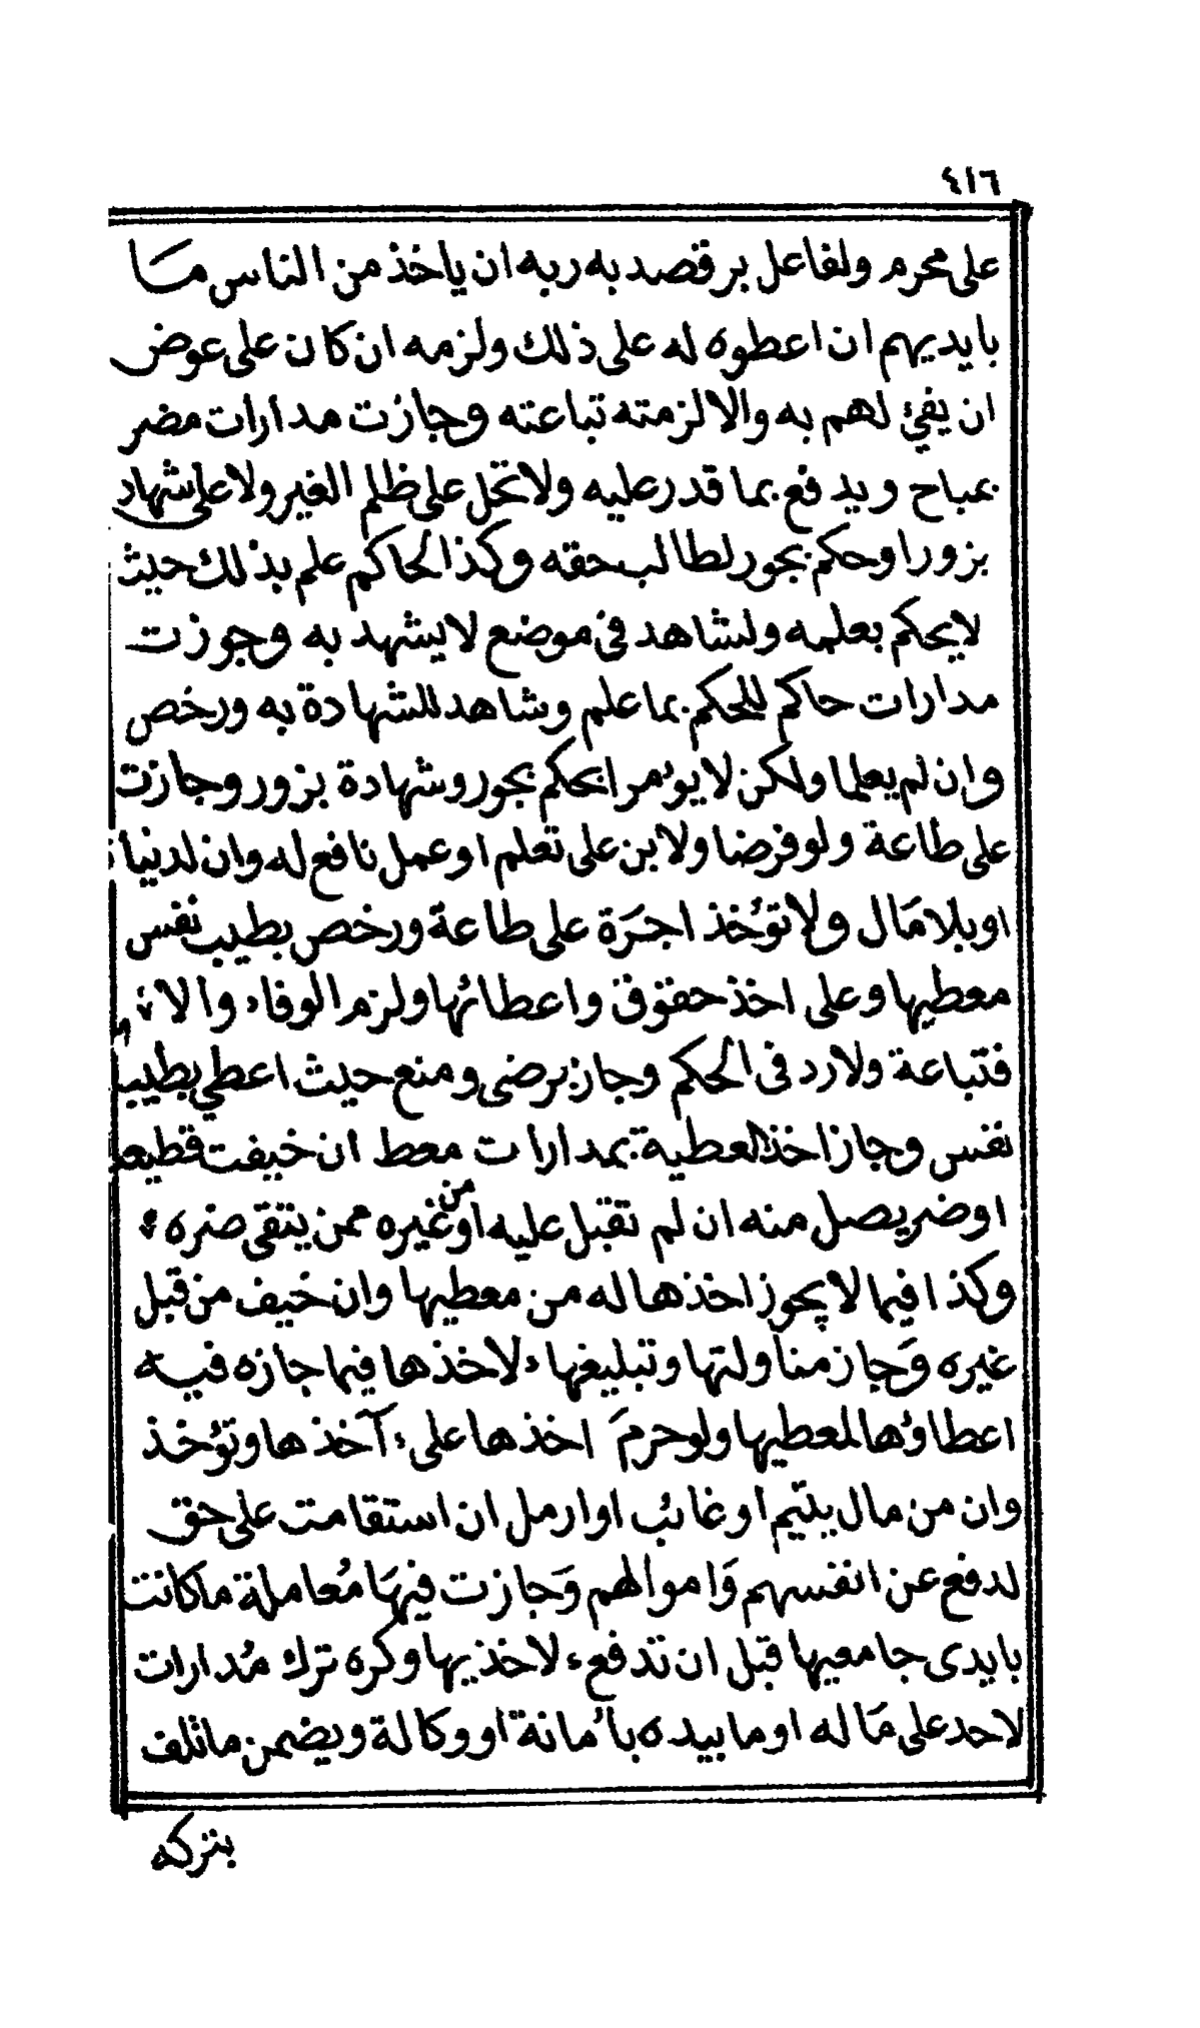 ٤١٦
على محرم ولفاعل بر قصد به ربه ان ياخذ من الناس مـا
بايديهم ان اعطوه له على ذلك ولزمه ان كان على عوض
ان يفئ لهم به والا لزمته تباعته وجازت مدارات مضر
بمباح ويدفع بما قدر عليه ولا تحل على ظلم الغير ولا على شهاد
بزور او حكم بجور لطالب حقه وكذا الحاكم علم بذلك حيث
لا يحكم بعلمه ولشاهد في موضع لا يشهد به وجوزت
مدارات حاكم للحكم بما علم وشاهد للشهادة به ورخص
وان لم يعلما ولكن لا يؤمرا بحكم بجور وشهادة بزور وجازت
على طاعة ولو فرضا ولابن على تعلم او عمل نافع له وان لدنياه
او بلا مَال ولا تؤخذ اجرَة على طاعة ورخص بطيب نفس
معطيها وعلى اخذ حقوق واعطائها ولزم الوفاء والا
فتباعة ولا رد في الحكم وجاز برضى ومنع حيث اعطي بطيب
نفس وجاز اخذ العطية بمدارات معط ان خيفت قطيعة
او ضر يصل منه ان لم تقبل عليه او من غيره ممن يتقى ضره
وكذا فيما لا يجوز اخذها له من معطيها وان خيف من قبل
غيره وَجاز مناولتها وتبليغها ء لاخذها فيما جازه فيـه
اعطاؤها لمعطيها ولو حرمَ اخذها على ء آخذها وتؤخذ
وان من مال يتيم او غائب او ارمل ان استقامت على حق
لدفع عن انفسهم وَاموالهم وَجازت فيهَا مُعاملة ما كانت
بايدى جامعيها قبل ان تدفع ء لاخذيها وكره ترك مُدارات
لاحد على مَا له او ما بيده بأمانة او وكالة ويضمن ما تلف
بتركه